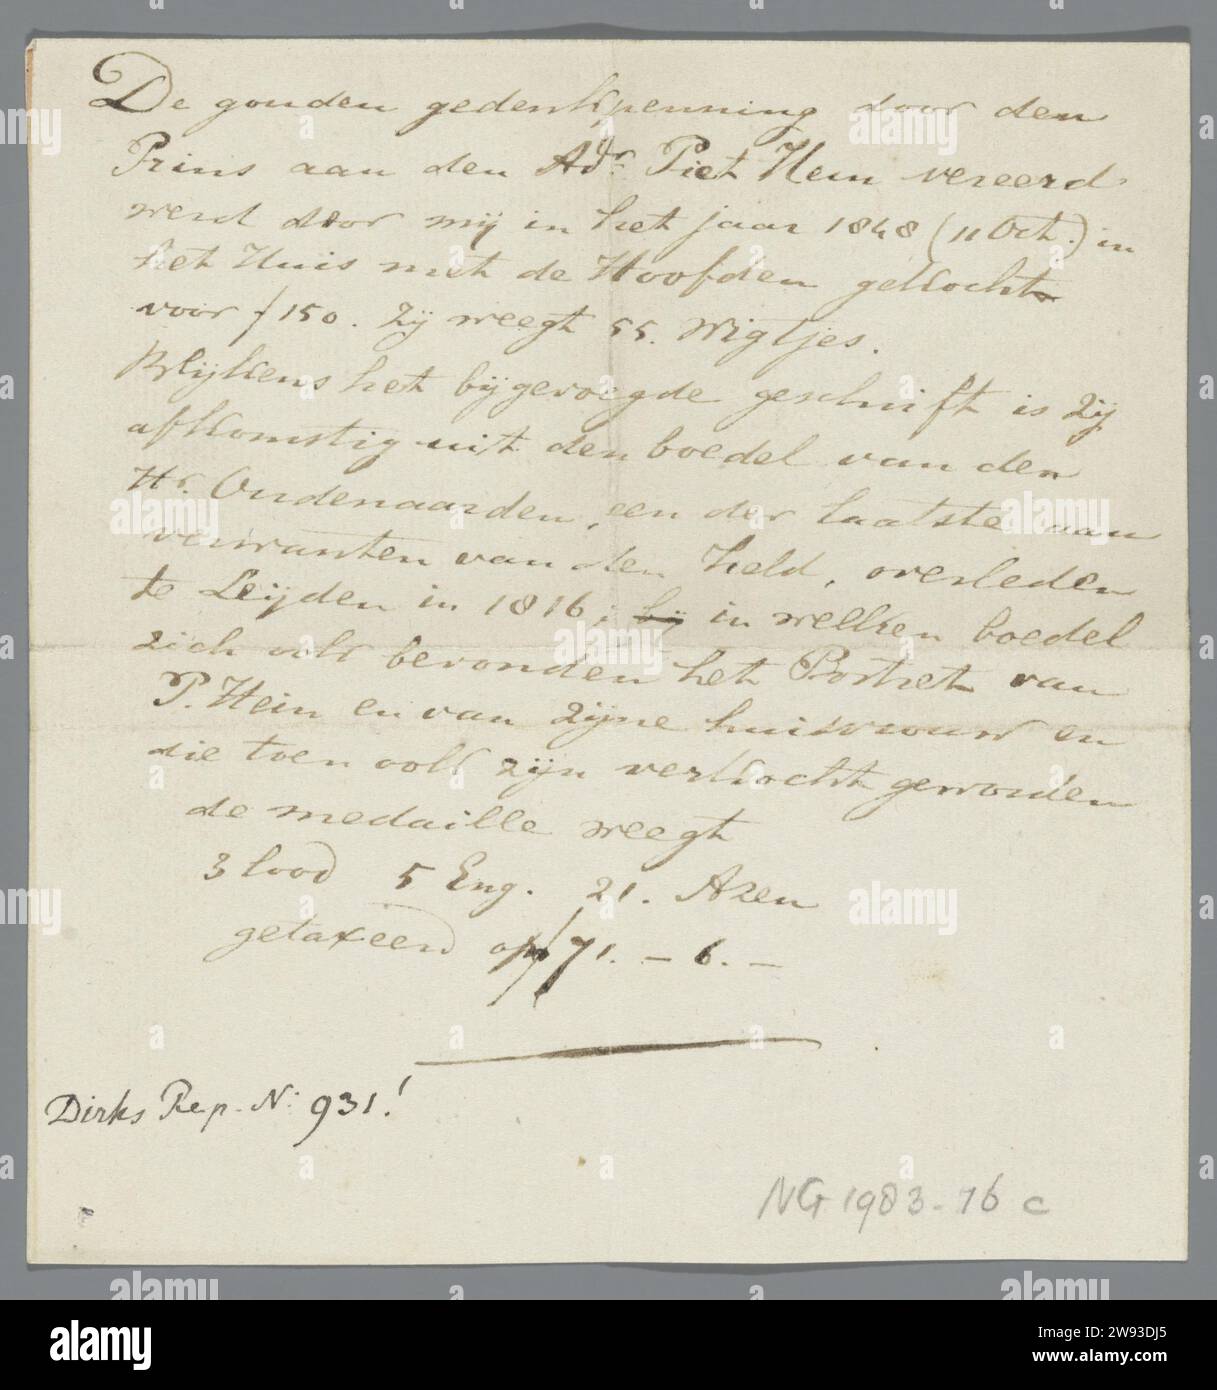 De gouden gedenkpenning door den
Prins aan den Adr. Piet Hein vereerd
werd door mij in het jaar 1848 (11 Oct.) in
het Huis met de Hoofden gekocht
voor f 150. Zij weegt 55. Wigtjes.
Blijkens het bijgevoegde geschrift is zij
afkomstig uit den boedel van den
Hr. Oudenaarden, een der laatste aan
verwanten van den held, overleden
te Leijden in 1816; bij in welken boedel
zich ook bevonden het Portret van
P. Hein en van zijne huisvrouw en
die toen ook zijn verkocht geworden
de medaille weegt
3 lood 5 Eng. 21. Azen
getaxeerd op f 71. - 6. -
Dirks Rep. N: 931!
NG 1983-76 c
alamy
Image ID: 2W93DJ5
www.alamy.com